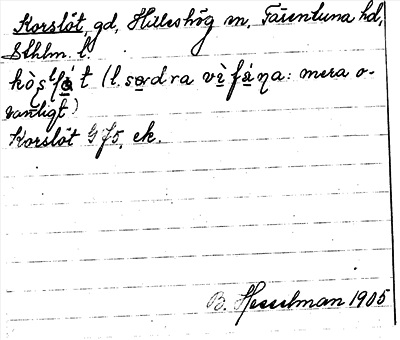 Korslöt, gd, Hilleshög sn, Färentuna hd,
Sthlm. l.
kòṣlǿt (l. sødra vèfǽŋa: mera o-
vanligt)
Korslöt Gf5, ek.
B. Hesselman 1905